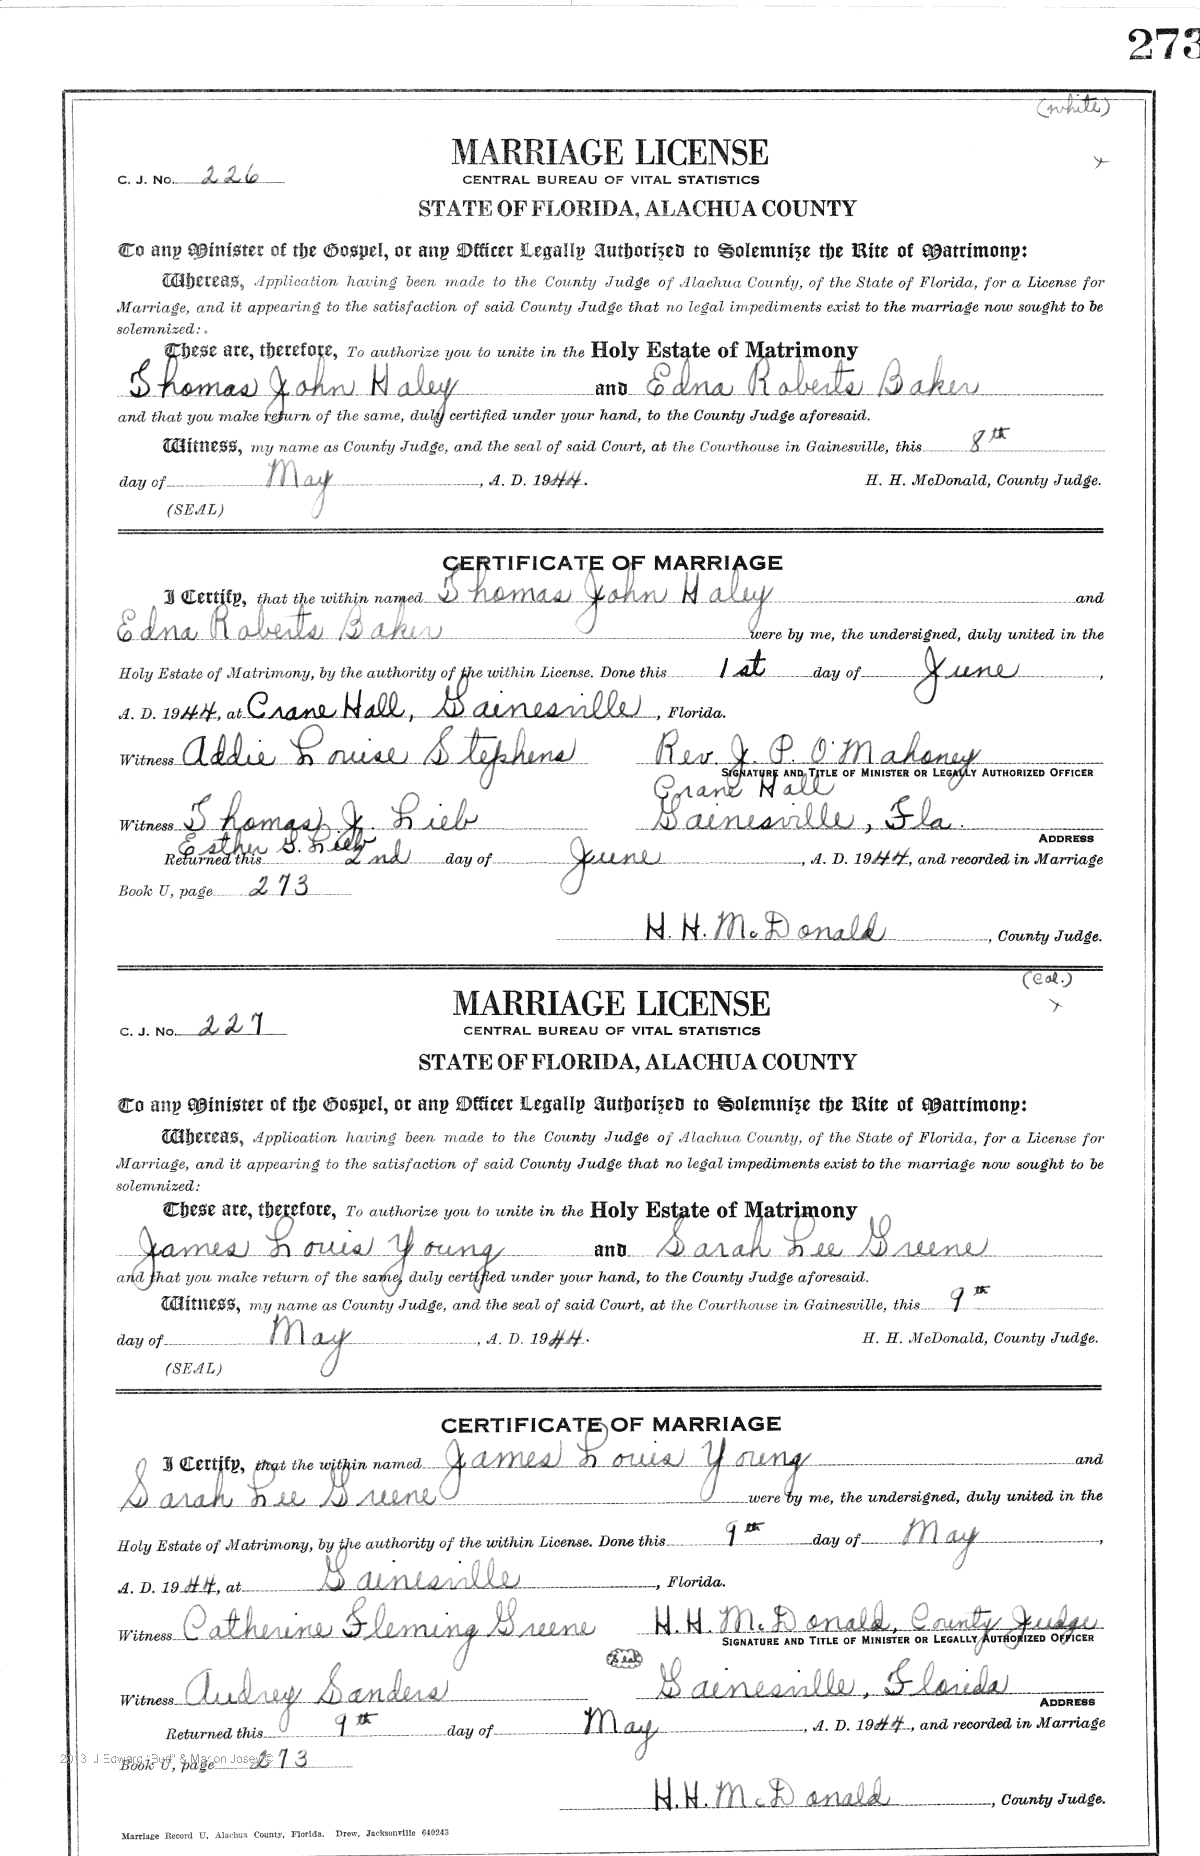 273
(white)
MARRIAGE LICENSE
C. J. No. 226
CENTRAL BUREAU OF VITAL STATISTICS
STATE OF FLORIDA, ALACHUA COUNTY
To any Minister of the Gospel, or any Officer Legally Authorized to Solemnize the Rite of Matrimony:
Whereas, Application having been made to the County Judge of Alachua County, of the State of Florida, for a License for
Marriage, and it appearing to the satisfaction of said County Judge that no legal impediments exist to the marriage now sought to be
solemnized:
These are, therefore, To authorize you to unite in the Holy Estate of Matrimony
Thomas John Haley and Edna Roberts Baker
and that you make return of the same, duly certified under your hand, to the County Judge aforesaid.
Witness, my name as County Judge, and the seal of said Court, at the Courthouse in Gainesville, this 8th
day of May, A. D. 1944. H. H. McDonald, County Judge.
(SEAL)
CERTIFICATE OF MARRIAGE
I Certify, that the within named Thomas John Haley and
Edna Roberts Baker were by me, the undersigned, duly united in the
Holy Estate of Matrimony, by the authority of the within License. Done this 1st day of June,
A. D. 1944, at Crane Hall, Gainesville, Florida.
Witness Addie Louise Stephens Rev. J. P. O'Mahoney
SIGNATURE AND TITLE OF MINISTER OR LEGALLY AUTHORIZED OFFICER
Crane Hall
Witness Thomas J. Lieb Gainesville, Fla.
Esther G. Lieb ADDRESS
Returned this 2nd day of June, A. D. 1944, and recorded in Marriage
Book U, page 273
H. H. McDonald, County Judge.
(Col.)
MARRIAGE LICENSE
C. J. No. 227
CENTRAL BUREAU OF VITAL STATISTICS
STATE OF FLORIDA, ALACHUA COUNTY
To any Minister of the Gospel, or any Officer Legally Authorized to Solemnize the Rite of Matrimony:
Whereas, Application having been made to the County Judge of Alachua County, of the State of Florida, for a License for
Marriage, and it appearing to the satisfaction of said County Judge that no legal impediments exist to the marriage now sought to be
solemnized:
These are, therefore, To authorize you to unite in the Holy Estate of Matrimony
James Louis Young and Sarah Lee Greene
and that you make return of the same, duly certified under your hand, to the County Judge aforesaid.
Witness, my name as County Judge, and the seal of said Court, at the Courthouse in Gainesville, this 9th
day of May, A. D. 1944. H. H. McDonald, County Judge.
(SEAL)
CERTIFICATE OF MARRIAGE
I Certify, that the within named James Louis Young and
Sarah Lee Greene were by me, the undersigned, duly united in the
Holy Estate of Matrimony, by the authority of the within License. Done this 9th day of May,
A. D. 1944, at Gainesville, Florida.
Witness Catherine Fleming Greene H. H. McDonald, County Judge
SIGNATURE AND TITLE OF MINISTER OR LEGALLY AUTHORIZED OFFICER
Seal
Witness Audrey Sanders Gainesville, Florida
ADDRESS
Returned this 9th day of May, A. D. 1944, and recorded in Marriage
2013 J Edward "Bud" & Macon Josey ©
Book U, page 273
H. H. McDonald, County Judge.
Marriage Record U, Alachua County, Florida. Drew, Jacksonville 640243